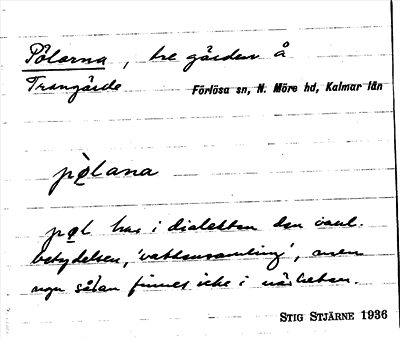 Pölarna, tre gärden å
Trangärde Förlösa sn, N. Möre hd, Kalmar län
pø̀lana
pøl har i dialekten den vanl.
betydelsen, 'vattensamling', men
ngn sådan finnes icke i närheten.
STIG STJÄRNE 1936